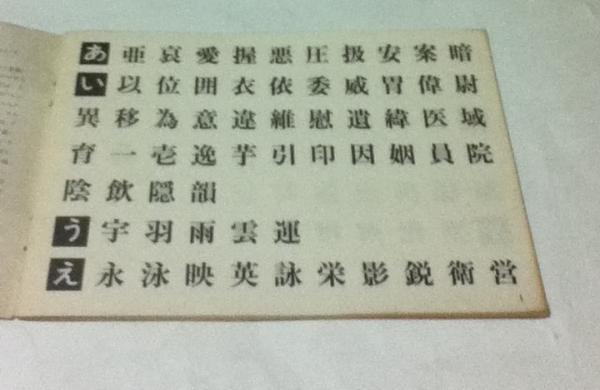 あ 亜 哀 愛 握 悪 圧 扱 安 案 暗
い 以 位 囲 衣 依 委 威 胃 偉 尉
異 移 為 意 違 維 慰 遺 緯 医 域
育 一 壱 逸 芋 引 印 因 姻 員 院
陰 飲 隠 韻
う 宇 羽 雨 雲 運
え 永 泳 映 英 詠 栄 影 鋭 衛 営
1